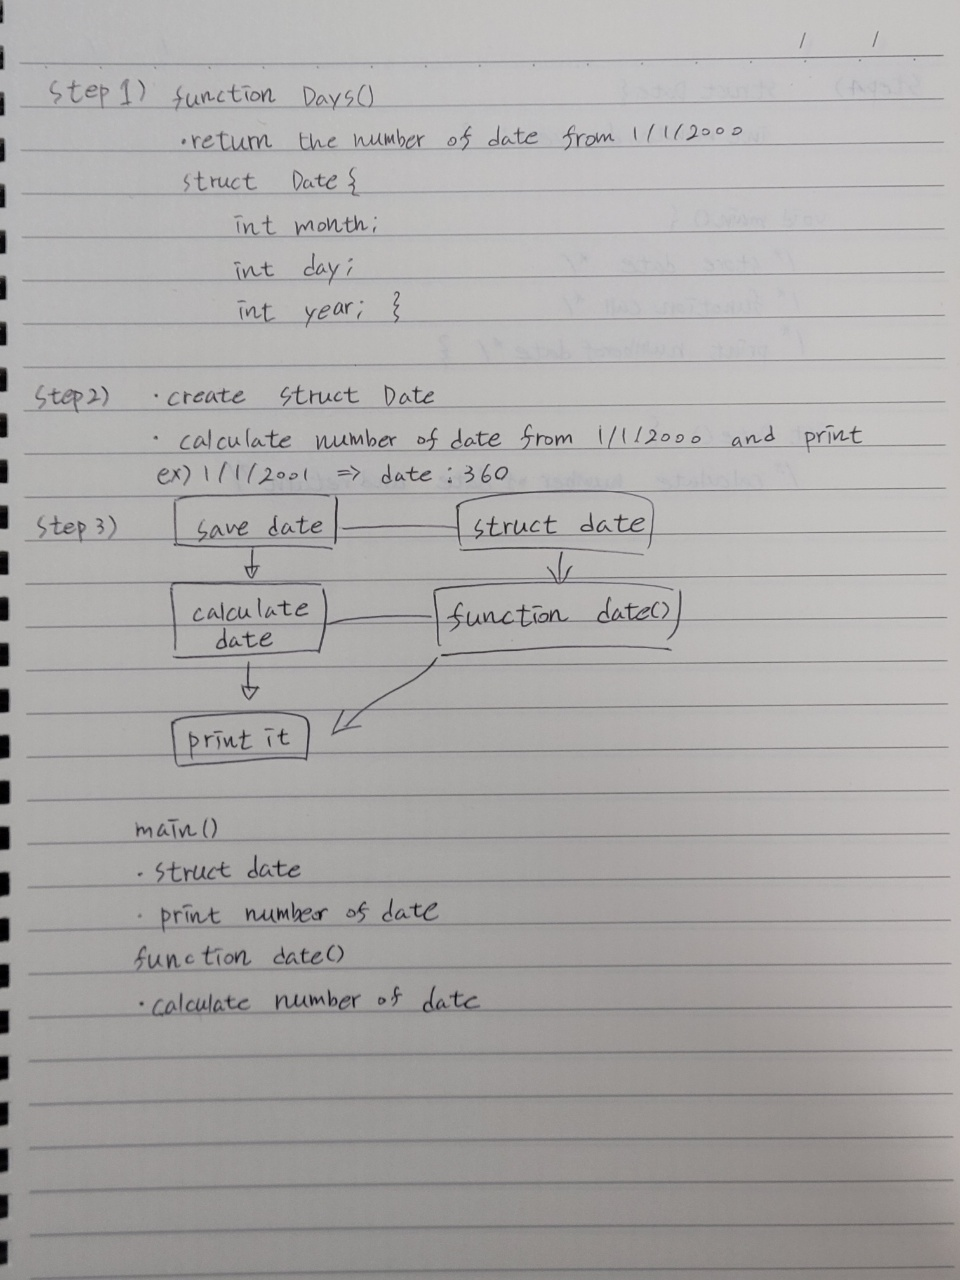 / /
Step 1) function Days()
·return the number of date from 1/1/2000
struct Date {
int month;
int day;
int year; }
Step2) ·create struct Date
· calculate number of date from 1/1/2000 and print
ex) 1/1/2001 => date : 360
Step 3) save date struct date
calculate date function date()
print it
main()
· struct date
· print number of date
function date()
·calculate number of date